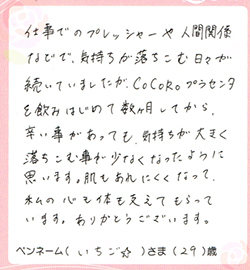 仕事でのプレッシャーや人間関係
などで、気持ちが落ちこむ日々が
続いていましたが、COCOROプラセンタ
を飲みはじめて数ヶ月してから、
辛い事があっても、気持ちが大きく
落ちこむ事が少なくなったように
思います。肌もあれにくくなって、
私の心も体も支えてもらって
います。ありがとうございます。
ペンネーム(いちご☆)さま(29)歳